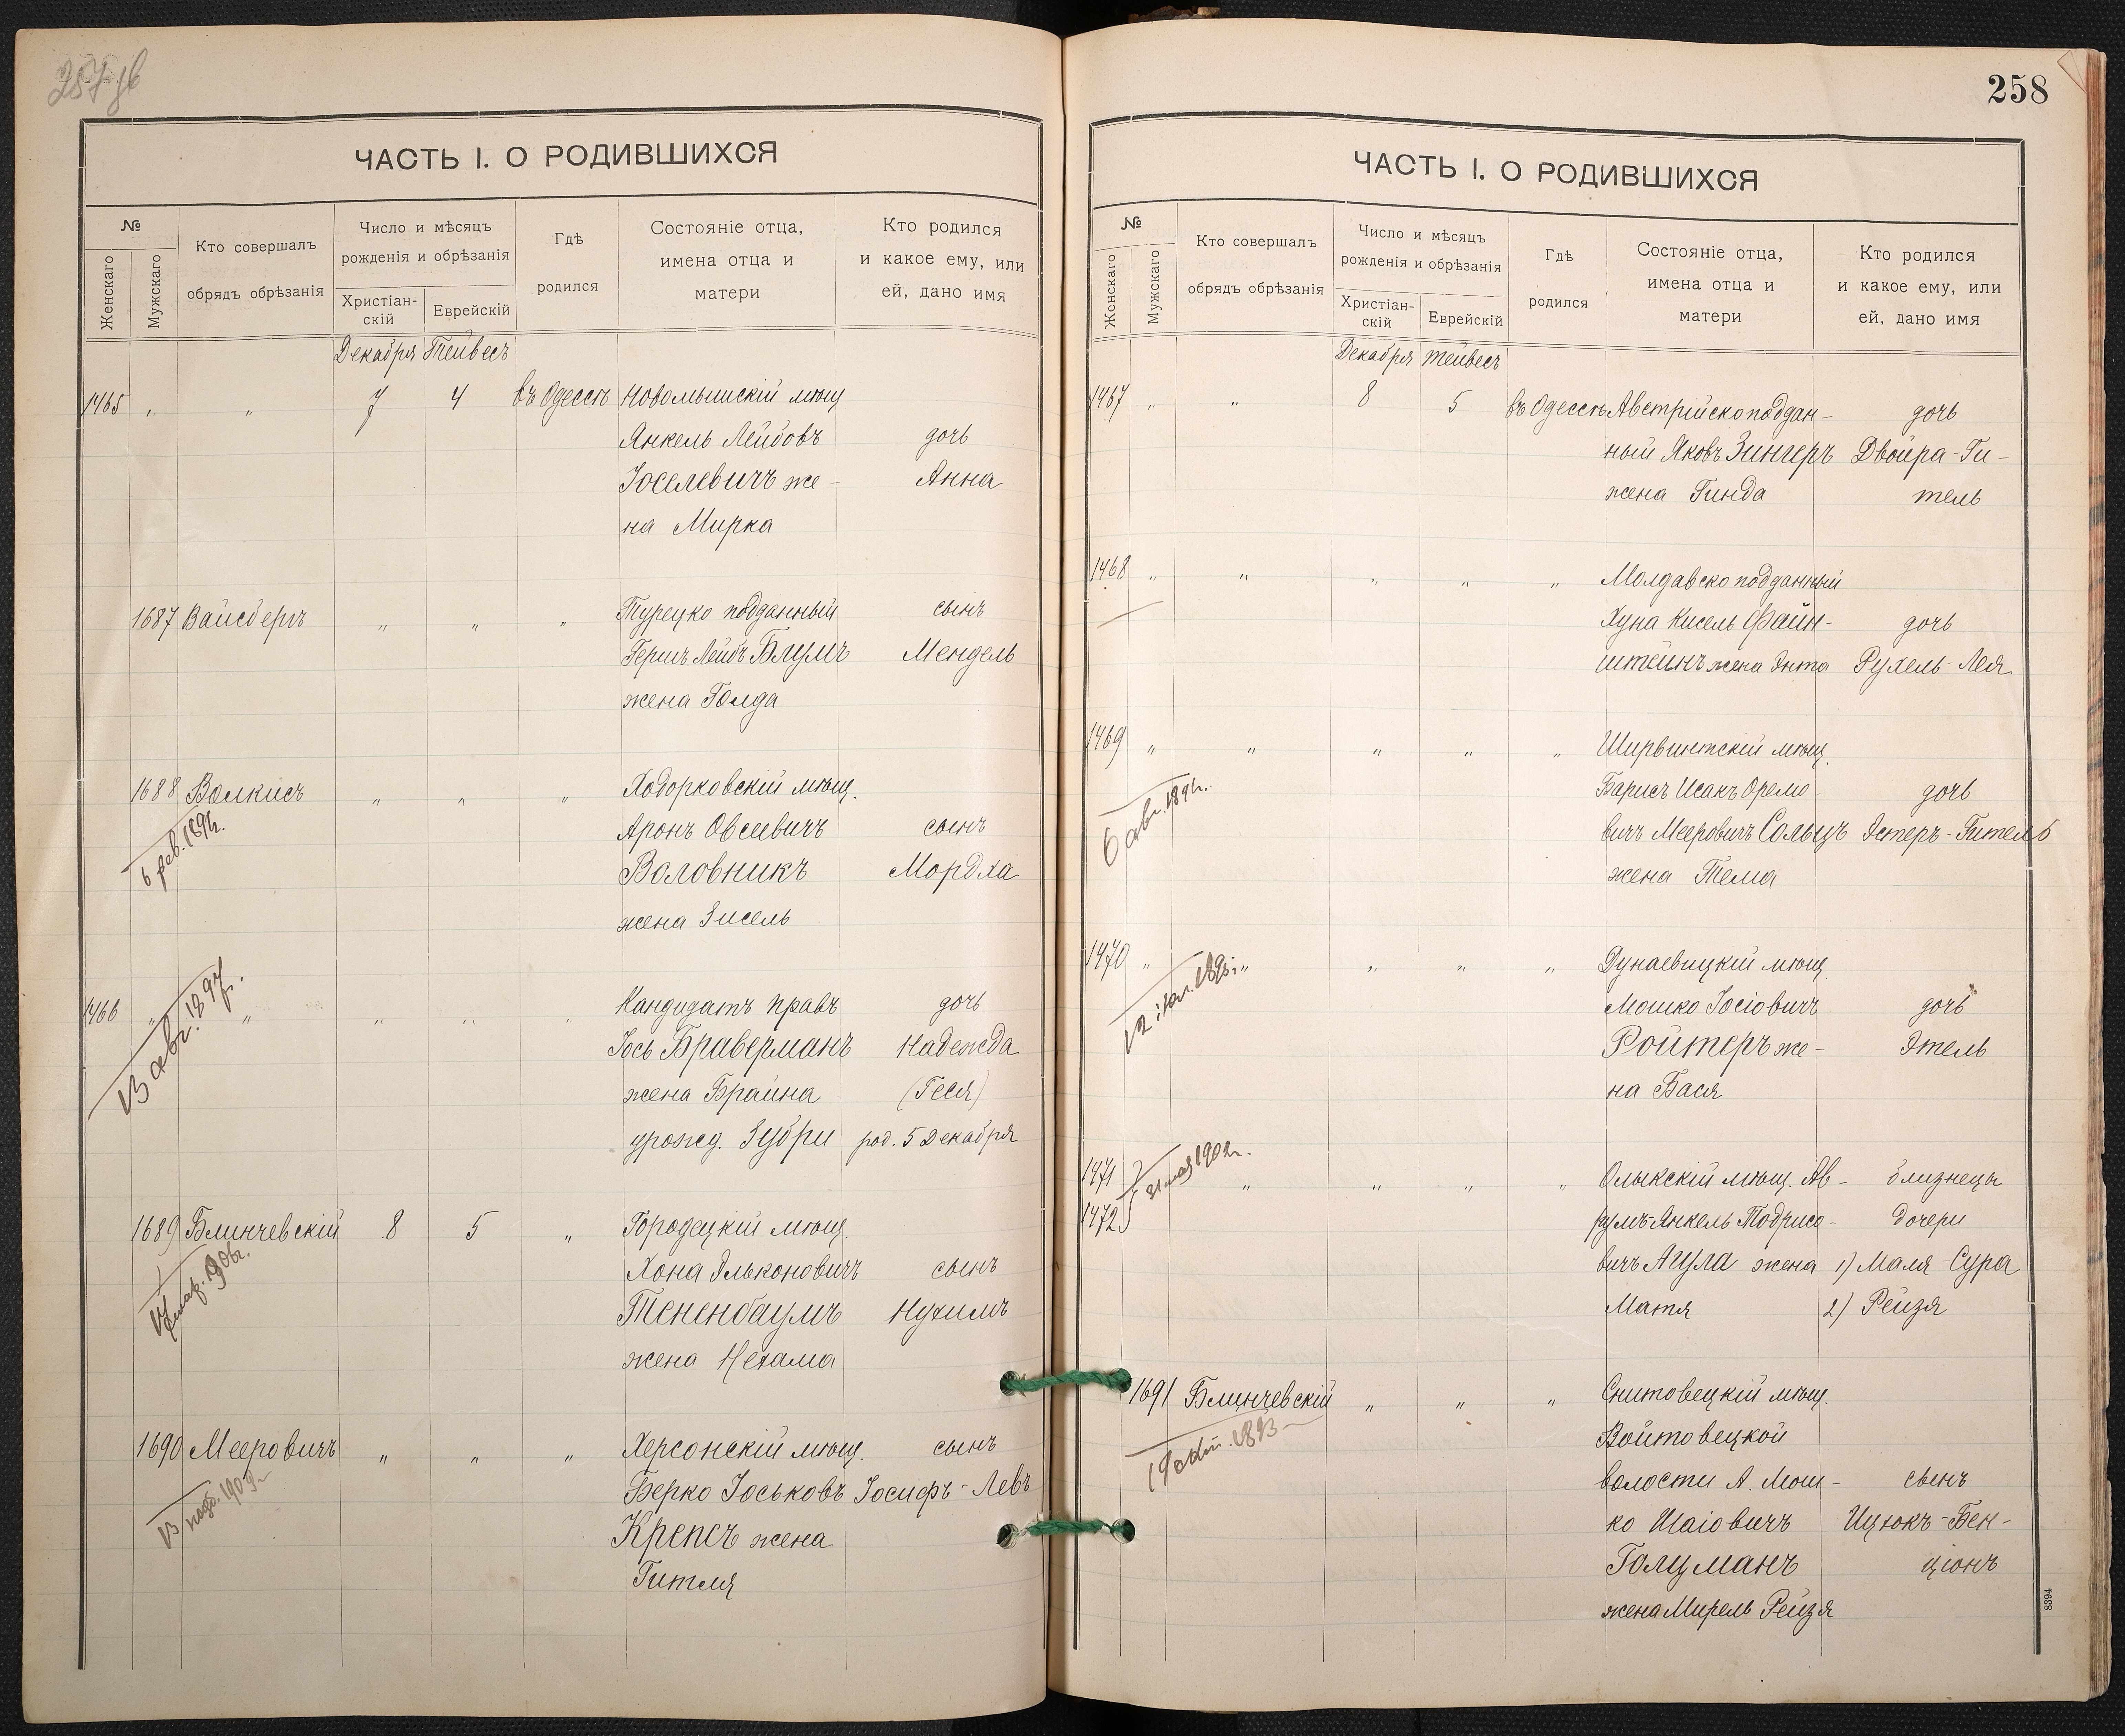 ЧАСТЬ I. О РОДИВШИХСЯ
№
Женскаго
Мужскаго
Кто совершалъ
обрядъ обрѣзанія
Число и мѣсяцъ
рожденія и обрѣзанія
Христіан-
скій
Еврейскій
Гдѣ
родился
Состояніе отца,
имена отца и
матери
Кто родился
и какое ему, или
ей, дано имя
Декабря Тейвесъ
1465 „ „ 7 4 въ Одессѣ Новомышскій мѣщ
Янкель Лейбовъ дочь
Іоселевичъ же- Анна
на Мирка
1687 Вайсбергъ „ „ „ Турецко подданный сынъ
Гершъ Лейбъ Блумъ Мендель
жена Голда
1688 Волкисъ „ „ „ Ходорковскій мѣщ.
6 фев. 1894г.
Аронъ Овсеевичъ сынъ
Воловникъ Мордха
жена Зисель
1466 „ „ „ „ „ Кандидатъ правъ дочь
13 авг. 1897.
Іось Браверманъ Надежда
жена Брайна (Геся)
урожд. Зубри род. 5 Декабря
1689 Блинчевскій 8 5 „ Городецкій мѣщ.
Хона Эльконовичъ сынъ
Тененбаумъ Нухимъ
жена Нехама
1690 Мееровичъ „ „ „ Херсонскій мѣщ. сынъ
Берко Іоськовъ Іосифъ-Левъ
Крепсъ жена
Гитля
258
ЧАСТЬ I. О РОДИВШИХСЯ
№
Женскаго
Мужскаго
Кто совершалъ
обрядъ обрѣзанія
Число и мѣсяцъ
рожденія и обрѣзанія
Христіан-
скій
Еврейскій
Гдѣ
родился
Состояніе отца,
имена отца и
матери
Кто родился
и какое ему, или
ей, дано имя
Декабря Тейвесъ
1467 „ „ 8 5 въ Одессѣ Австрійскоподдан- дочь
ный Яковъ Зингеръ Двойра-Ги-
жена Гинда тель
1468 „ „ „ „ „ Молдавско подданный
Хуна Кисель Файн- дочь
штейнъ жена Энта Рухель-Лея
1469 „ „ „ „ „ Ширвинтскій мѣщ.
6 авг. 1894г.
Барисъ Исакъ Орело- дочь
вичъ Мееровичъ Сольцъ Эстеръ-Гитель
жена Тема
1470 „ „ „ „ „ Дунаевицкій мѣщ.
Мошко Іосіовичъ дочь
Ройтеръ же- Этель
на Бася
1471 „ „ „ „ Олыкскій мѣщ. Ав- близнецы
31 мая 1902г.
1472 румъ-Янкель Тодрисо- дочери
вичъ Агула жена 1) Маля-Сура
Матя 2) Рейзя
1691 Блинчевскій „ „ „ Снитовецкій мѣщ.
Войтовецкой
волости А. Мош- сынъ
ко Шаіовичъ Ицхокъ-Бен-
Голцманъ ціонъ
жена Мирель Рейзя
8394